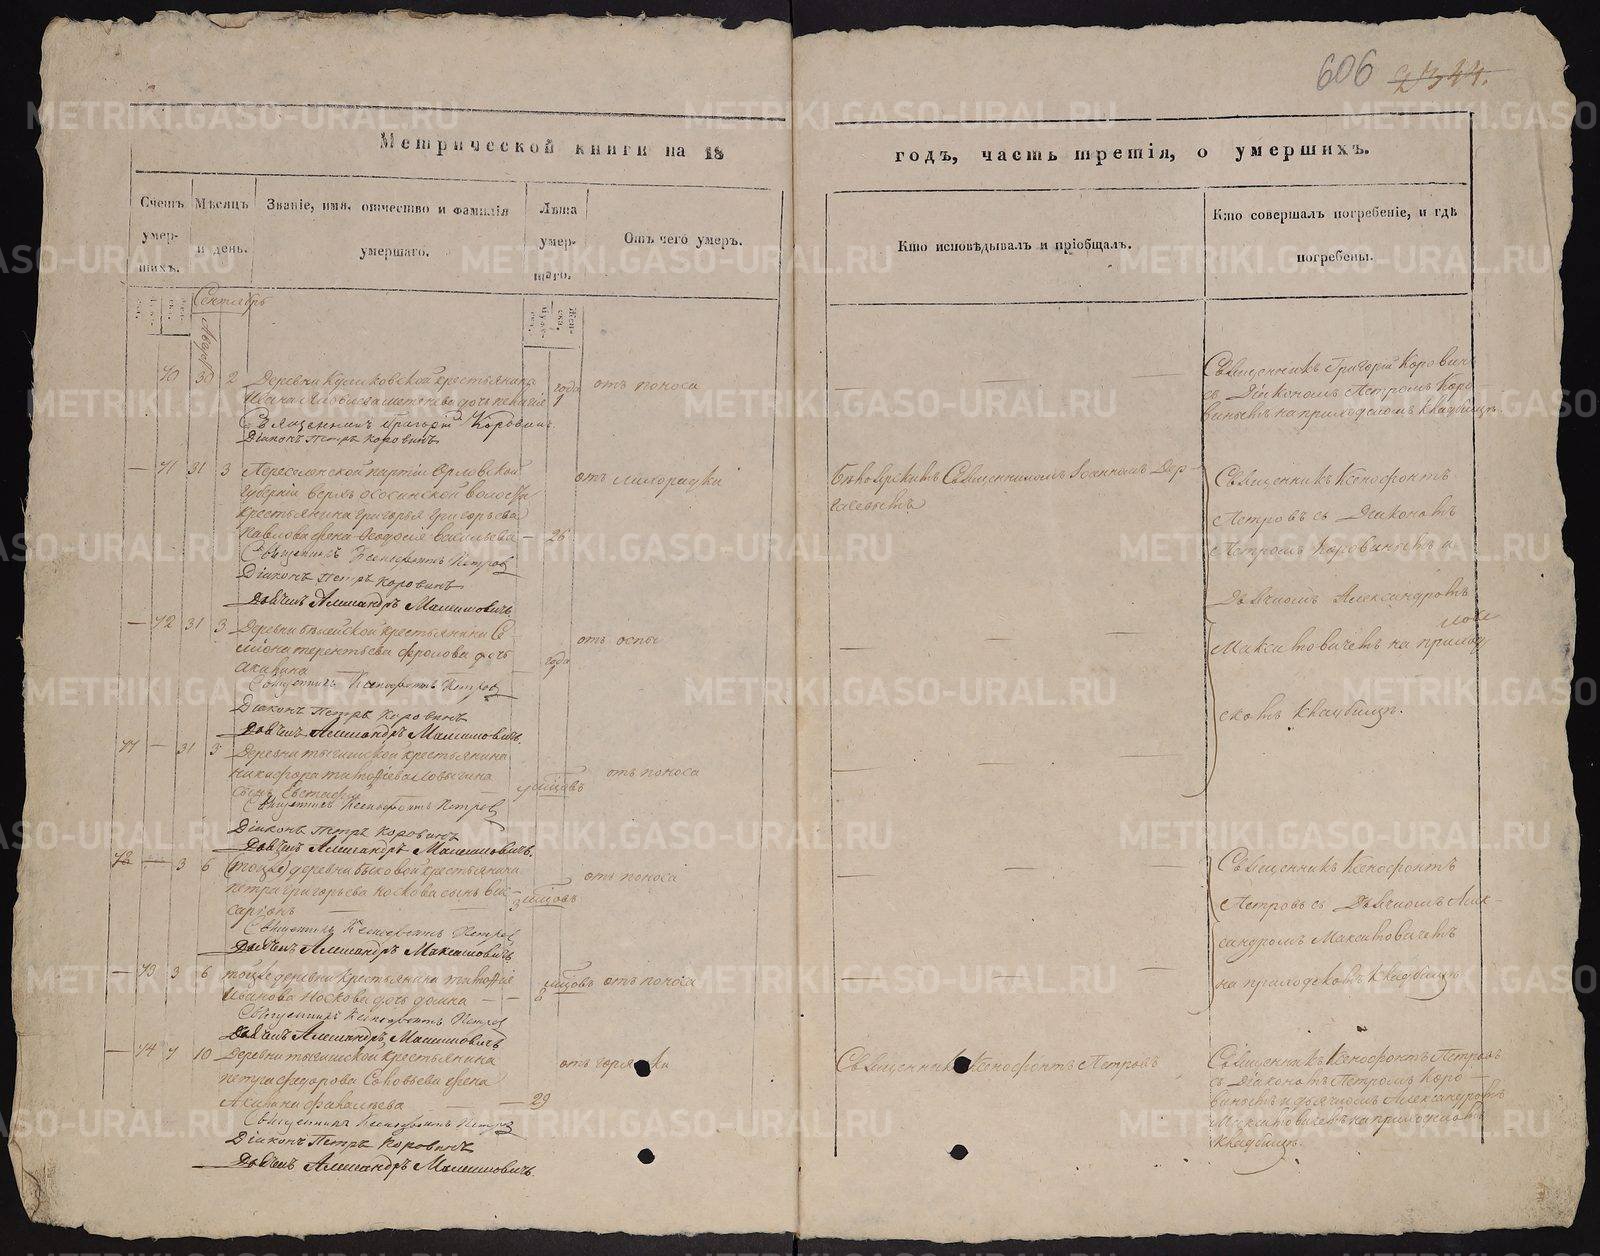 606 2344.
Метрической книги на 18
годъ, часть третія, о умершихъ.
Счетъ умер- шихъ.
Мѣсяцъ и день.
Званіе, имя, отчество и фамилія умершаго.
Лѣта умер- шаго.
Отъ чего умеръ.
Кто исповѣдывалъ и пріобщалъ.
Кто совершалъ погребеніе, и гдѣ погребены.
Сентябрь
70 30 2 Деревни Куликовской крестьянина
года 1 отъ поноса
Священникъ Григорій Коровинъ
Діаконъ Петръ Коровинъ
Священникъ Григорій Коровинъ
съ Діакономъ Петромъ Коро
винымъ на приходскомъ кладбищѣ.
71 31 3 Переселенской партіи Орловской
губерніи волости
крестьянина Григорья Григорьева
Павлова жена Феодосія Васильева 26
отъ лихорадки
Священникомъ Іоанномъ
Священникъ Ксенофонтъ Петровъ
Діаконъ Петръ Коровинъ
Дьячекъ Александръ Максимовичъ
Священникъ Ксенофонтъ
Петровъ съ Діакономъ
Петромъ Коровинымъ и
Дьячкомъ Александромъ
Максимовичемъ на приход
скомъ кладбищѣ.
72 31 3 Деревни крестьянина Се
міона Терентьева Фролова дочь
Акилина
года отъ оспы
Священникъ Ксенофонтъ Петровъ
Діаконъ Петръ Коровинъ
Дьячекъ Александръ Максимовичъ.
77 31 3 Деревни крестьянина
Никифора Тимофѣева
сынъ Евстафій
отъ поноса
Священникъ Ксенофонтъ Петровъ
Діаконъ Петръ Коровинъ
Дьячекъ Александръ Максимовичъ.
78 3 6 деревни Быковой крестьянина
Петра Григорьева Носкова сынъ Вис
саріонъ
3 мѣсяцовъ отъ поноса
Священникъ Ксенофонтъ Петровъ
Дьячекъ Александръ Максимовичъ
Священникъ Ксенофонтъ
Петровъ съ Дьячкомъ Алек-
сандромъ Максимовичемъ
на приходскомъ кладбищѣ
73 3 6 тоя же деревни крестьянина Тимофѣя
Иванова Носкова дочь Домна
6 мѣсяцовъ отъ поноса
Священникъ Ксенофонтъ Петровъ
Дьячекъ Александръ Максимовичъ
74 7 10 Деревни крестьянина
Петра Федорова Соловьева жена
Акилина 29
отъ горячки
Священникъ Ксенофонтъ Петровъ
Священникъ Ксенофонтъ Петровъ
Діаконъ Петръ Коровинъ
Дьячекъ Александръ Максимовичъ.
Священникъ Ксенофонтъ Петровъ
съ Діакономъ Петромъ Коро
винымъ и дьячкомъ Александромъ
Максимовичемъ на приходскомъ
кладбищѣ.
METRIKI.GASO-URAL.RU